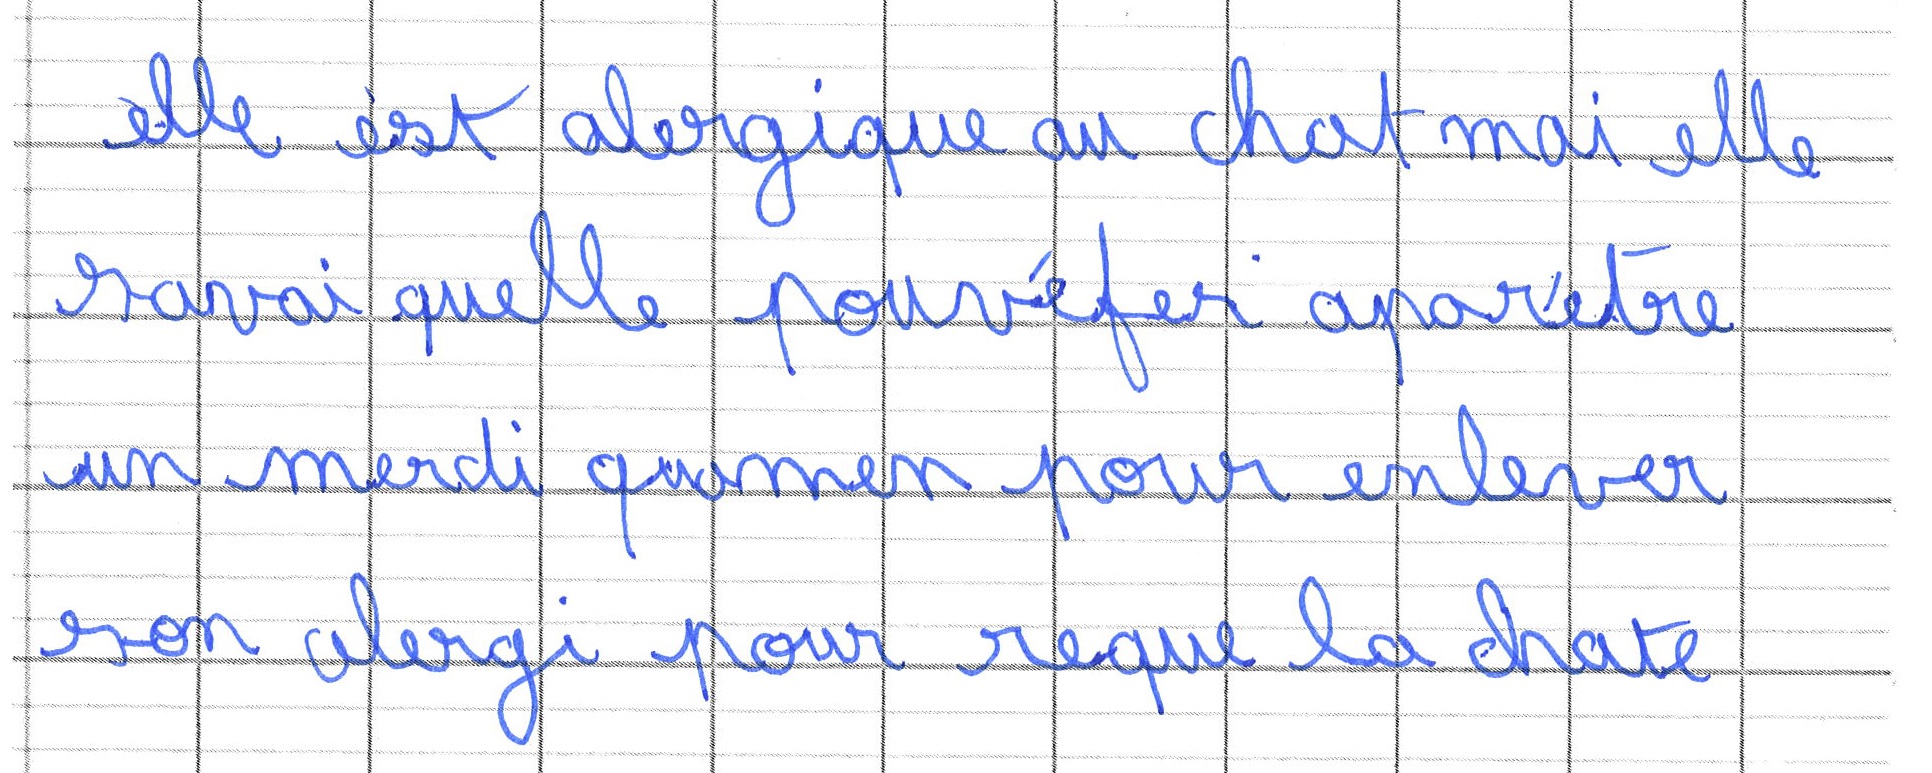 elle est alergique au chat mai elle
savai quelle pouvéfer aparétre
un merdi quamen pour enlever
son alergi pour seque la chate